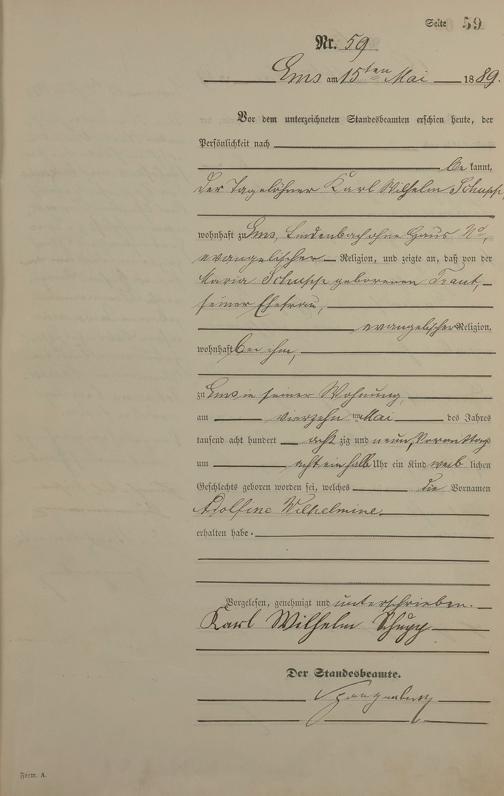 Seite 59
Nr. 59
Ems am 15ten Mai 1889.
Vor dem unterzeichneten Standesbeamten erschien heute, der
Persönlichkeit nach
be kannt,
der Tagelöhner Karl Wilhelm Schupp,
wohnhaft zu Ems, Lindenbach ohne Haus No,
evangelischer Religion, und zeigte an, daß von der
Maria Schupp geborenen Traut,
seiner Ehefrau,
evangelischer Religion,
wohnhaft bei ihm,
zu Ems in seiner Wohnung,
am vierzehn ten Mai des Jahres
tausend acht hundert acht zig und neun, Vormittag
um acht ein halb Uhr ein Kind weib lichen
Geschlechts geboren worden sei, welches die Vornamen
Adolfine Wilhelmine
erhalten habe.
Vorgelesen, genehmigt und unterschrieben.
Karl Wilhelm Schupp
Der Standesbeamte.
Form. A.